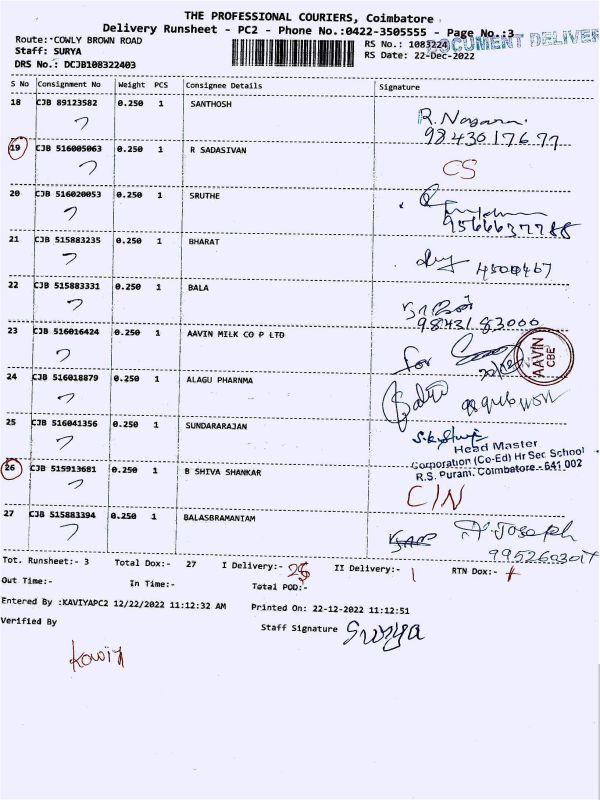 THE PROFESSIONAL COURIERS, Coimbatore
Delivery Runsheet - PC2 - Phone No.:0422-3505555 - Page No.:3
DOCUMENT DELIVER
Route: COWLY BROWN ROAD
RS No.: 1083224
Staff: SURYA
RS Date: 22-Dec-2022
DRS No.: DCJB108322403
S No Consignment No Weight PCS Consignee Details Signature
18 CJB 89123582 0.250 1 SANTHOSH
98430 17677
19 CJB 516005063 0.250 1 R SADASIVAN CS
20 CJB 516020053 0.250 1 SRUTHE
9566637788
21 CJB 515883235 0.250 1 BHARAT
22 CJB 515883331 0.250 1 BALA
98431 83000
23 CJB 516016424 0.250 1 AAVIN MILK CO P LTD for
AAVIN
CBE
24 CJB 516018879 0.250 1 ALAGU PHARNMA
25 CJB 516041356 0.250 1 SUNDARARAJAN
Head Master
Corporation (Co-Ed) Hr Sec School
R.S. Puram, Coimbatore - 641 002
26 CJB 515913681 0.250 1 B SHIVA SHANKAR C/N
27 CJB 515883394 0.250 1 BALASBRAMANIAM Joseph
9952603017
Tot. Runsheet:- 3 Total Dox:- 27 I Delivery:- II Delivery:- 1 RTN Dox:-
Out Time:- In Time:- Total POD:-
Entered By :KAVIYAPC2 12/22/2022 11:12:32 AM Printed On: 22-12-2022 11:12:51
Verified By Staff Signature Surya